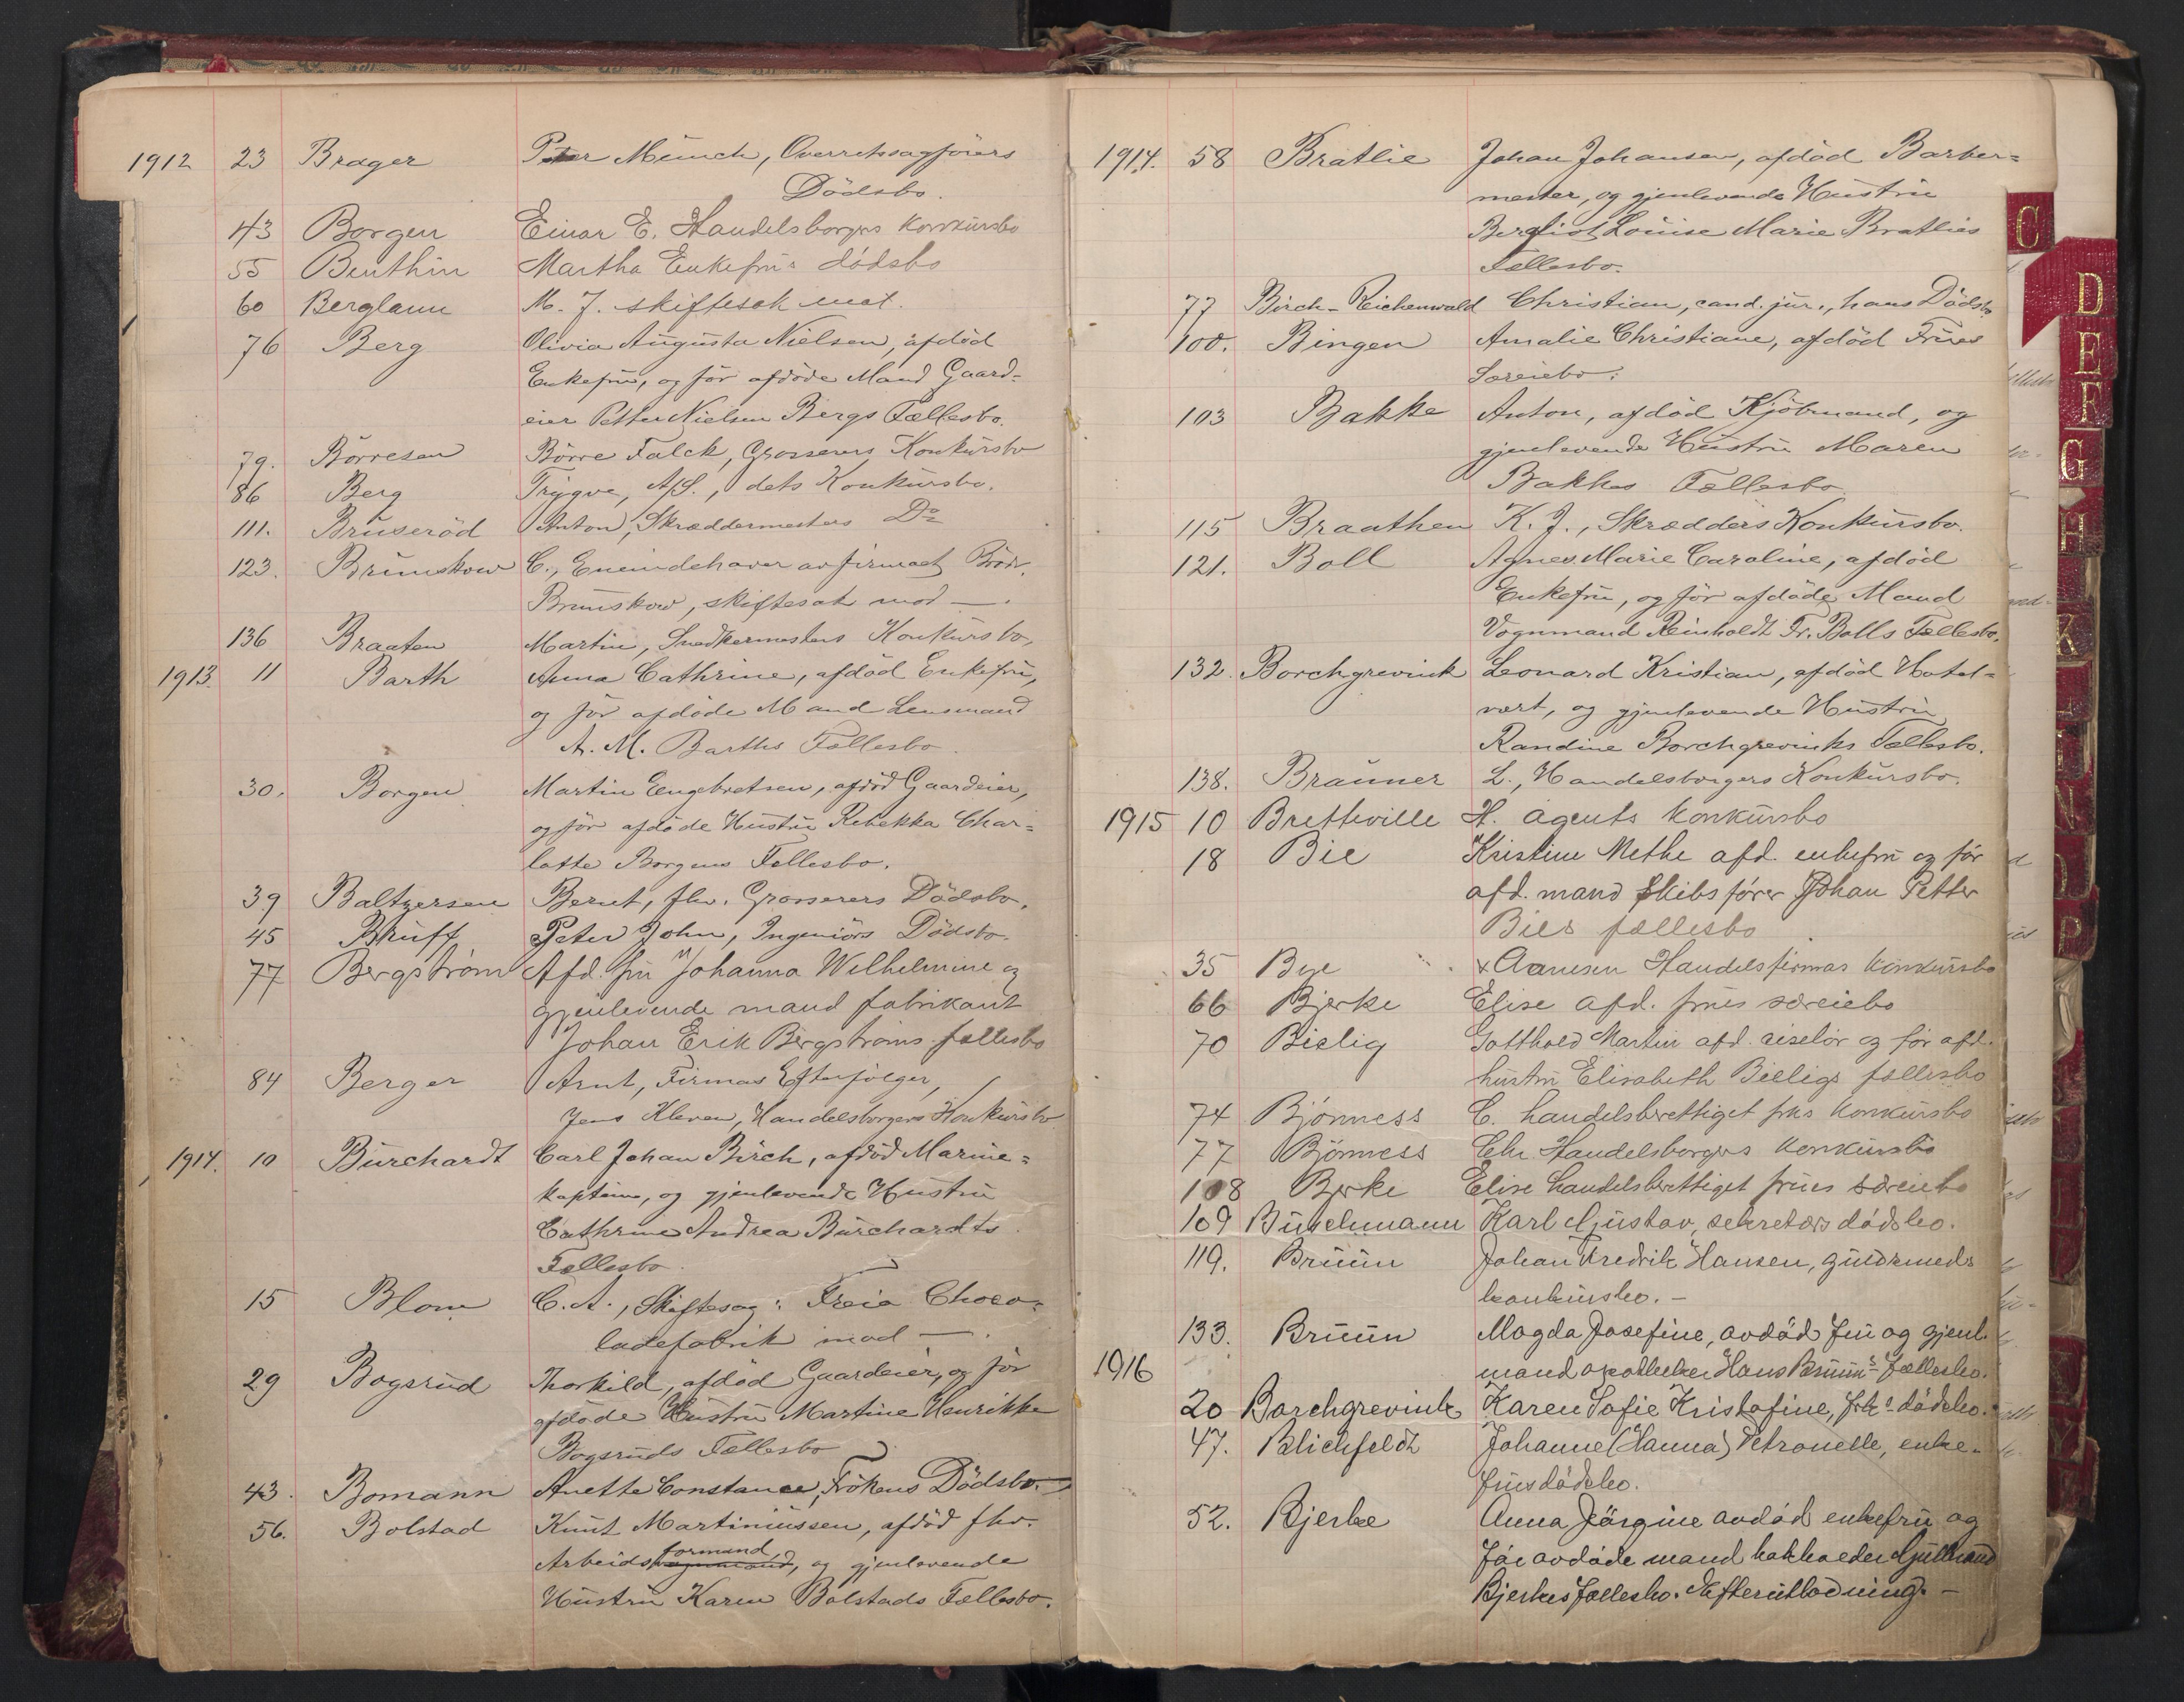 1912 23 Brager Peter Münch, Overretssagførers
Dödsbo.
43 Borgen Einar E. Handelsborgers Konkursbo
55 Benthin Martha Enkefrus dødsbo
60 Berglann M. J. skiftesak mot.
76 Berg Olivia Augusta Nielsen, afdöd
Enkefru, og för afdöde Mand Gaard-
eier Petter Nielsen Bergs Fællesbo.
79. Börresen Börre Falck, Grosserers Konkursbo
86 Berg Trygve, A/S., dets Konkursbo.
111. Bruseröd Anton, Skræddermesters Do
123. Brunskow C., Eneindehaver av firmaet Brödr.
Brunskow, skiftesak mod —.
136 Braaten Martin, Snedkermesters Konkursbo,
1913. 11 Barth Anna Cathrine, afdöd Enkefru,
og för afdöde Mand Lensmand
A. M. Barths Fællesbo.
30. Borgen Martin Engebretsen, afdöd Gaardeier,
og för afdöde Hustru Rebekka Char-
lotte Borgens Fællesbo.
39 Baltzersen Bernt, fhv. Grosserers Dödsbo.
45 Bruff Peter John, Ingeniörs Dödsbo.
77 Bergström Afd. fru Johanna Wilhelmine og
gjenlevende mand fabrikant
Johan Erik Bergströms fællesbo
84 Berger Arnt, Firmas Efterfölger,
Jens Kleven, Handelsborgers Konkursbo
1914. 10 Burchardt Carl Johan Birch, afdöd Marine-
kaptein, og gjenlevende Hustru
Cathrine Andrea Burchardts
Fællesbo.
15 Blom C. A., Skiftesag: Freia Choco-
ladefabrik mod —.
29 Bogsrud Thorkild, afdöd Gaardeier, og för
afdöde Hustru Martine Henrikke
Bogsruds Fællesbo
43. Bomann Anette Constance, Frökens Dödsbo.
56. Bolstad Knut Martiniussen, afdöd fhv.
formand
Arbeids, og gjenlevende
Hustru Karen Bolstads Fællesbo.
1914. 58 Bratlie Johan Johansen, afdöd Barber-
mester, og gjenlevende Hustru
Bergliot Louise Marie Bratlies
Fællesbo.
77 Birch-Reichenwald Christian, cand. jur., hans Dödsbo
100. Bingen Amalie Christiane, afdöd Frues
Særeiebo.
103 Bakke Anton, afdöd Kjöbmand, og
gjenlevende Hustru Maren
Bakkes Fællesbo
115 Braathen K. J., Skrædders Konkursbo.
121. Boll Agnes Marie Caroline, afdöd
Enkefru, og för afdöde Mand
Vognmand Reinholdt Fr. Bolls Fællesbo.
132. Borchgrevink Leonard Kristian, afdöd Hotel-
vært, og gjenlevende Hustru
Randine Borchgrevinks Fællesbo.
138. Brauner L., Handelsborgers Konkursbo.
1915 10 Bretteville H. agents konkursbo
18 Bie Kristine Methe afd. enkefru og før
afd. mand Skibsfører Johan Petter
Bies fællesbo
35 Bye & Aanesen Handelsfirmas konkursbo
66 Bjerke Elise afd. frues særeiebo
70 Bielig Gotthold Martin afd. ciselør og før afd.
hustru Elisabeth Bieligs fællesbo
74 Bjönness C. handelsberettiget frks konkursbo
77 Bjönness Chr. Handelsborgers konkursbo
108 Bjerke Elise handelsberettiget frues særeiebo
109 Buschmann Karl Gustav, sekretærs dødsbo.
119. Bruun Johan Fredrik Hansen, guldsmeds
konkursbo. —
133. Bruun Magda Josefine, avdød fru og gjenl.
1916 mand apotheker Hans Bruuns fællesbo.
20 Borchgrevink Karen Sofie Kristofine, frks dödsbo.
47. Blichfeldt Johanne (Hanna) Petronelle, enke-
frus dødsbo.
52. Bjerke Anna Jörgine avdød enkefru og
før avdøde mand Gulbrand
Bjerkes fællesbo. Efterutlodning. —
C
D
E
F
G
H
K
N
P